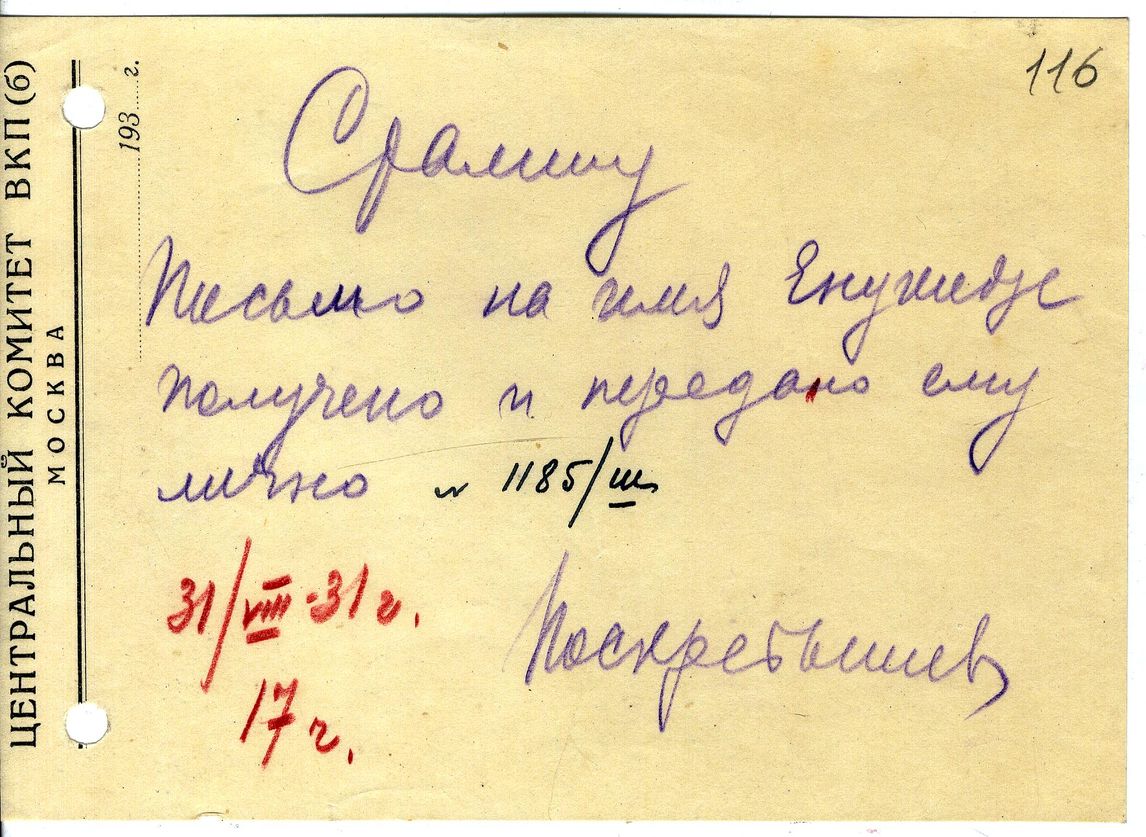 116
ЦЕНТРАЛЬНЫЙ КОМИТЕТ ВКП(б)
МОСКВА
193 г.
Сталину
Письмо на имя Енукидзе
получено и передано ему
лично
н 1185/ш
31/VIII-31 г.
17 ч.
Поскребышев